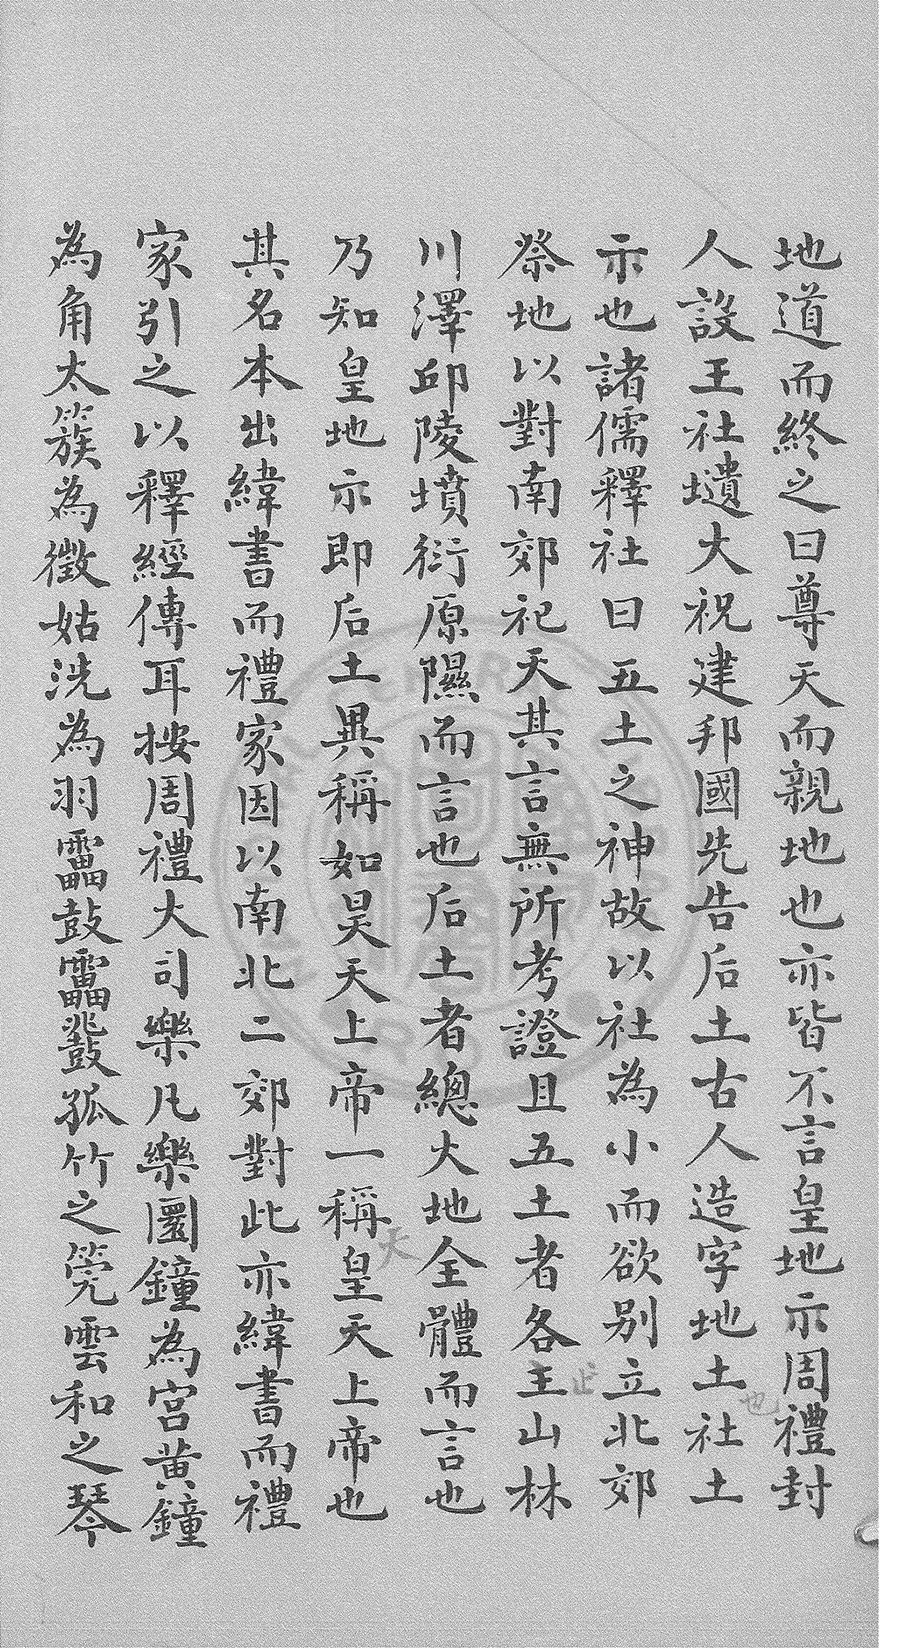 地道而終之曰尊天而親地也亦皆不言皇地示周禮封
人設王社壝大祝建邦國先告后土古人造字地土社土
也
示也諸儒釋社曰五土之神故以社為小而欲別立北郊
祭地以對南郊祀天其言無所考證且五土者各主山林
止
川澤邱陵墳衍原隰而言也后土者總大地全體而言也
乃知皇地示即后土異稱如昊天上帝一稱皇天上帝也
天
其名本出緯書而禮家因以南北二郊對此亦緯書而禮
家引之以釋經傳耳按周禮大司樂凡樂圜鐘為宮黄鐘
為角太簇為徵姑洗為羽靁鼓靁鼗孤竹之筦雲和之琴